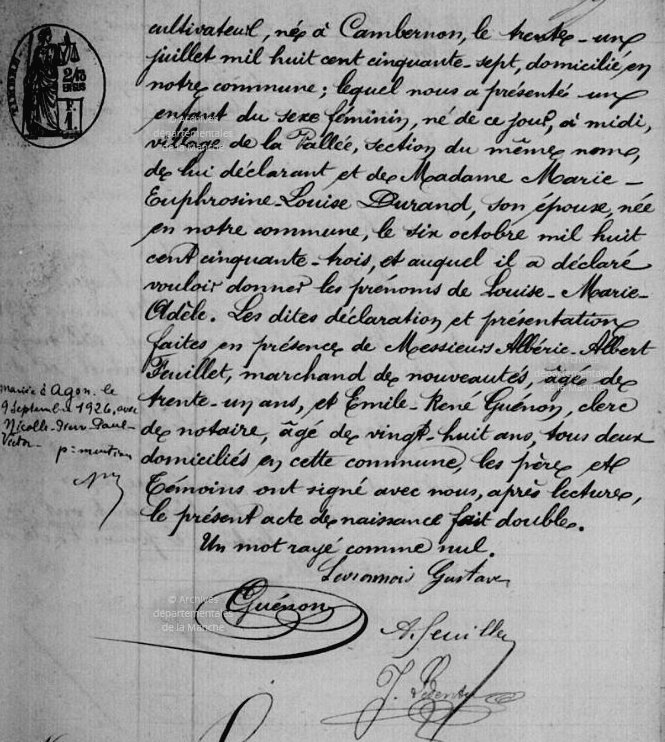 cultivateur, né à Cambernon, le trente-un
juillet mil huit cent cinquante-sept, domicilié en
notre commune; lequel nous a présenté un
enfant du sexe féminin, né de ce jour, à midi,
village de la Vallée, section du même nom,
de lui déclarant et de Madame Marie-
Euphrosine-Louise Durand, son épouse, née
en notre commune, le six octobre mil huit
cent cinquante-trois, et auquel il a déclaré
vouloir donner les prénoms de Louise-Marie-
Adèle. Les dites déclaration et présentation
faites en présence de Messieurs Albéric-Albert
Feuillet, marchand de nouveautés, âgé de
trente-un ans, et Emile-René Guénon, clerc
de notaire, âgé de vingt-huit ans, tous deux
domiciliés en cette commune, les père et
témoins ont signé avec nous, après lecture,
le présent acte de naissance fait double.
Un mot rayé comme nul.
Gustave
Guénon
A. Feuillet
J.
mariée à Agon, le
9 Septembre 1926, avec
Nicolle Paul-
Victor
pr mention
© Archives
départementales
de la Manche
© Archives
départementales
de la Manche
© Archives
départementales
de la Manche